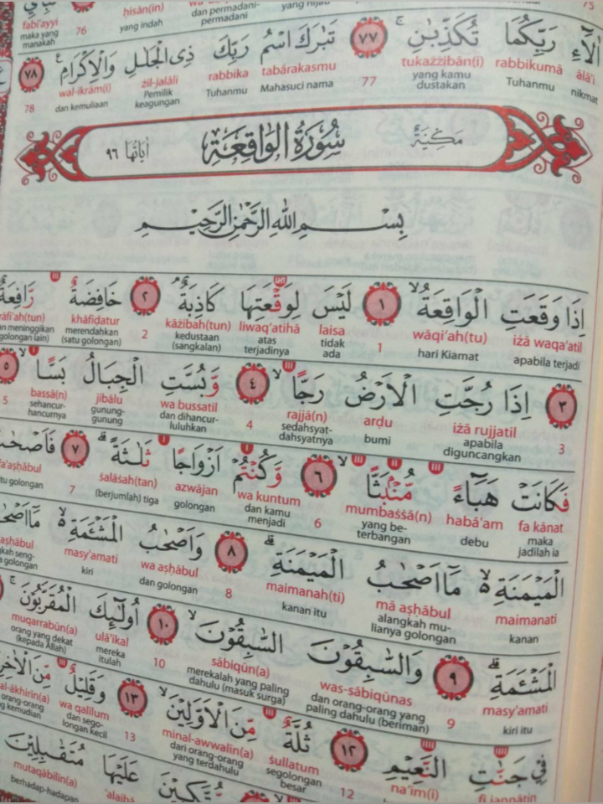 ءَالَآءِ رَبِّكُمَا تُكَذِّبٰنِ ٧٧ تَبٰرَكَ اسْمُ رَبِّكَ ذِى الْجَلٰلِ وَالْاِكْرَامِ ٧٨
rabbikumā tukażżibān(i) tabārakasmu rabbika żil-jalāli wal-ikrām(i)
nikmat Tuhanmu yang kamu dustakan 77 Mahasuci nama Tuhanmu Pemilik keagungan dan kemuliaan 78
مَكِّيَّةٌ سُوْرَةُ الْوَاقِعَةِ اٰيَاتُهَا ٩٦
بِسْمِ اللّٰهِ الرَّحْمٰنِ الرَّحِيْمِ
اِذَا وَقَعَتِ الْوَاقِعَةُ ١ لَيْسَ لِوَقْعَتِهَا كَاذِبَةٌ ٢ خَافِضَةٌ رَّافِعَةٌ
iżā waqa'atil wāqi'ah(tu) laisa liwaq'atihā kāżibah(tun) khāfiḍatur rāfi'ah(tun)
apabila terjadi hari Kiamat 1 tidak ada atas terjadinya kedustaan (sangkalan) 2 merendahkan (satu golongan) meninggikan golongan lain)
٣ اِذَا رُجَّتِ الْاَرْضُ رَجًّا ٤ وَبُسَّتِ الْجِبَالُ بَسًّا ٥
iżā rujjatil arḍu rajjā(n) wa bussatil jibālu bassā(n)
3 apabila diguncangkan bumi sedahsyat-dahsyatnya 4 dan dihancur-luluhkan gunung-gunung sehancur-hancurnya 5
فَكَانَتْ هَبَآءً مُّنْۢبَثًّا ٦ وَكُنْتُمْ اَزْوَاجًا ثَلٰثَةً ٧ فَاَصْحٰبُ
fa kānat habā'am mumbaśśā(n) wa kuntum azwājan śalāśah(tan) fa'aṣḥābul
maka jadilah ia debu yang be-terbangan 6 dan kamu menjadi golongan (berjumlah) tiga 7 golongan
الْمَيْمَنَةِ مَآ اَصْحٰبُ الْمَيْمَنَةِ ٨ وَاَصْحٰبُ الْمَشْـَٔمَةِ مَآ اَصْحٰبُ
maimanati mā aṣḥābul maimanah(ti) wa aṣḥābul masy'amati aṣḥābul
kanan alangkah mu-lianya golongan kanan itu 8 dan golongan kiri golongan
الْمَشْـَٔمَةِ ٩ وَالسّٰبِقُوْنَ السّٰبِقُوْنَ ١٠ اُولٰۤىِٕكَ الْمُقَرَّبُوْنَ
masy'amati was-sābiqūnas sābiqūn(a) ulā'ikal muqarrabūn(a)
kiri itu 9 dan orang-orang yang paling dahulu (beriman) merekalah yang paling dahulu (masuk surga) 10 mereka itulah orang yang dekat (kepada Allah)
فِيْ جَنّٰتِ النَّعِيْمِ ١٢ ثُلَّةٌ مِّنَ الْاَوَّلِيْنَ ١٣ وَقَلِيْلٌ مِّنَ الْاٰخِرِيْنَ
fī jannātin na'īm(i) śullatum minal-awwalīn(a) wa qalīlum
12 segolongan besar dari orang-orang yang terdahulu 13 dan sego-longan kecil orang-orang kemudian
عَلَيْهَا مُتَقٰبِلِيْنَ
'alaihā mutaqābilīn(a)
berhadap-hadapan